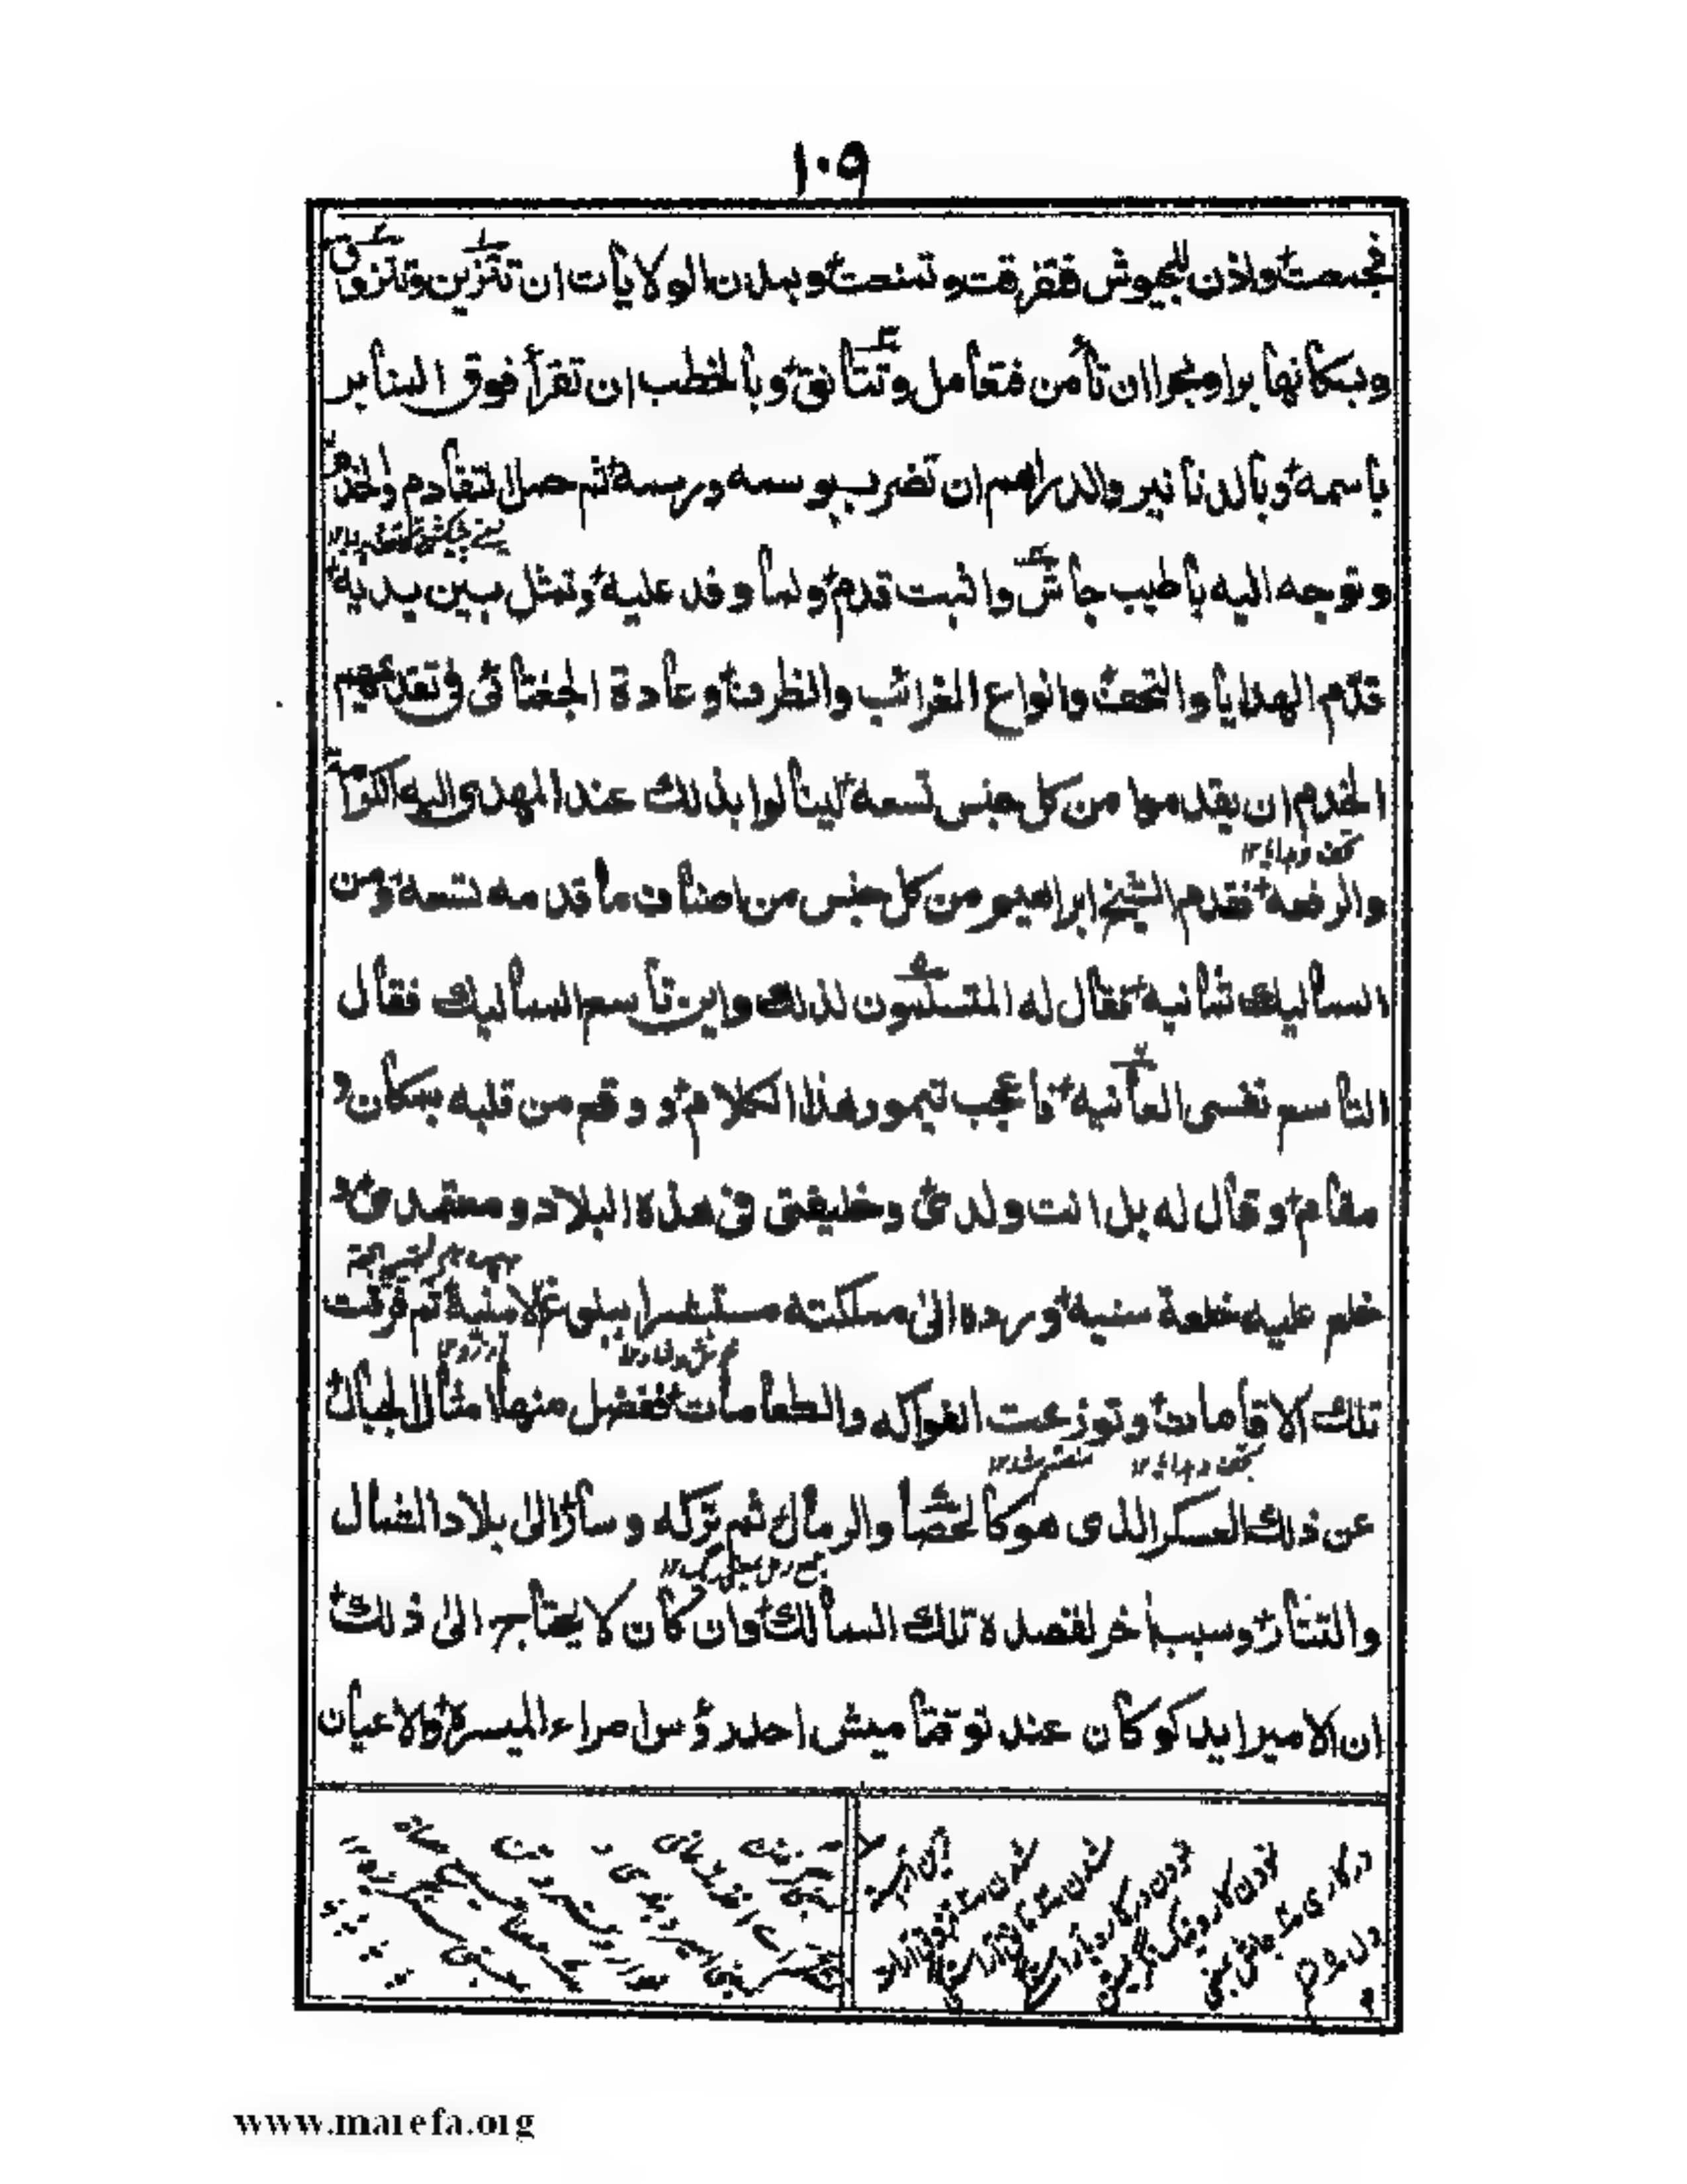 ١٠٩
فجمعت واذن للجيوش فتفرقت وتمنعت وبمدن الولايات ان تتزين وتتزوق
وبسكانها برا وبحرا ان تأمن فتعامل وتتأنق وبالخطب ان تقرأ فوق المنابر
باسمه وبالدنانير والدراهم ان تضرب بوسمه ورسمه ثم حصل التقادم والخدم
وتوجه اليه باطيب جاش واثبت قدم ولما وفد عليه وتمثل بين يديه
قدم الهدايا والتحف وانواع الغرائب والظرف وعادة الجغتائى فى تقديمهم
الخدم ان يقدموا من كل جنس تسعة لينالوا بذلك عند المهدى اليه اكرامة
والرفعة فقدم الشيخ ابراهيم من كل جنس من اصناف ما قدمه تسعة ومن
المماليك ثمانية فقال له المتسلمون لذلك واين تاسع المماليك فقال
التاسع نفسى العانية فاعجب تيمور هذا الكلام ووقع من قلبه بمكان و
مقام وقال له بل انت ولدى وخليفتى فى هذه البلاد ومعتمدى و
خلع عليه خلعة سنية ورده الى مملكته مستبشرا ببلوغ الامنية ثم فرقت
تلك الاقامات وتوزعت الفواكه والطعامات ففضل منها امثال الجبال
عن ذلك العسكر الذى هو كالحصا والرمال ثم تركه وسار الى بلاد الشمال
والتتار وسبب اخر لقصده تلك الممالك وان كان لا يحتاج الى ذلك
ان الامير ايدكو كان عند توقتاميش احد رؤس امراء الميسرة والاعيان
www.marefa.org